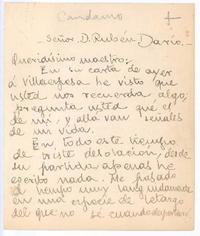 Candamo
Señor D. Rubén Darío.
Queridísimo maestro:
En su carta de ayer
á Villaespesa he visto que
usted nos recuerda algo;
pregunta usted qué es
de mí; y allá van señales
de mi vida.
En todo este tiempo
de triste desolación, desde
su partida apenas he
escrito nada. He pasado
el tiempo muy languidamente
en una especie de letargo
del que no sé cuando despertaré